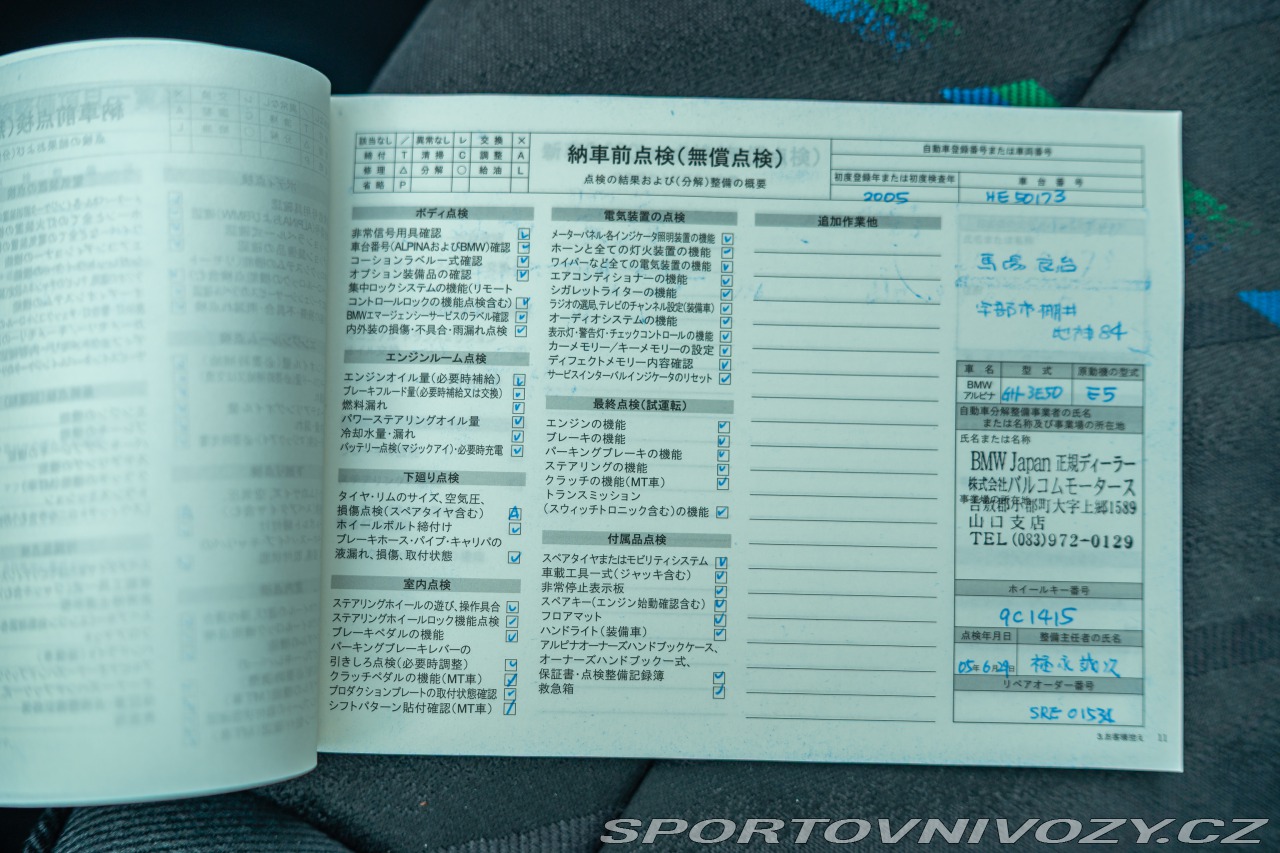 該当なし / 異常なし レ 交換 ×
締付 T 清掃 C 調整 A
修理 △ 分解 ○ 給油 L
省略 P
納車前点検(無償点検)
点検の結果および(分解)整備の概要
自動車登録番号または車両番号
初度登録年または初度検査年 車台番号
2005 HE50173
ボディ点検
非常信号用具確認
車台番号(ALPINAおよびBMW)確認
コーションラベル一式確認
オプション装備品の確認
集中ロックシステムの機能(リモート
コントロールロックの機能点検含む)
BMWエマージェンシーサービスのラベル確認
内外装の損傷・不具合・雨漏れ点検
エンジンルーム点検
エンジンオイル量(必要時補給)
ブレーキフルード量(必要時補給又は交換)
燃料漏れ
パワーステアリングオイル量
冷却水量・漏れ
バッテリー点検(マジックアイ)・必要時充電
下廻り点検
タイヤ・リムのサイズ、空気圧、
損傷点検(スペアタイヤ含む) A
ホイールボルト締付け
ブレーキホース・パイプ・キャリパの
液漏れ、損傷、取付状態
室内点検
ステアリングホイールの遊び、操作具合
ステアリングホイールロック機能点検
ブレーキペダルの機能
パーキングブレーキレバーの
引きしろ点検(必要時調整)
クラッチペダルの機能(MT車)
プロダクションプレートの取付状態確認
シフトパターン貼付確認(MT車)
電気装置の点検
メーターパネル・各インジケータ照明装置の機能
ホーンと全ての灯火装置の機能
ワイパーなど全ての電気装置の機能
エアコンディショナーの機能
シガレットライターの機能
ラジオの選局、テレビのチャンネル設定(装備車)
オーディオシステムの機能
表示灯・警告灯・チェックコントロールの機能
カーメモリー/キーメモリーの設定
ディフェクトメモリー内容確認
サービスインターバルインジケータのリセット
最終点検(試運転)
エンジンの機能
ブレーキの機能
パーキングブレーキの機能
ステアリングの機能
クラッチの機能(MT車)
トランスミッション
(スウィッチトロニック含む)の機能
付属品点検
スペアタイヤまたはモビリティシステム
車載工具一式(ジャッキ含む)
非常停止表示板
スペアキー(エンジン始動確認含む)
フロアマット
ハンドライト(装備車)
アルピナオーナーズハンドブックケース、
オーナーズハンドブック一式、
保証書・点検整備記録簿
救急箱
追加作業他
宇部市棚井
84
車名 型式 原動機の型式
BMW
アルピナ GH-3E50 E5
自動車分解整備事業者の氏名
または名称及び事業場の所在地
氏名または名称
BMW Japan 正規ディーラー
株式会社バルコムモータース
事業場の所在地
吉敷郡小郡町大字上郷1589
山口支店
TEL(083)972-0129
ホイールキー番号
9C1415
点検年月日 整備主任者の氏名
05年6月29日
リペアオーダー番号
SRE 01531
3.お客様控え 11
SPORTOVNIVOZY.CZ